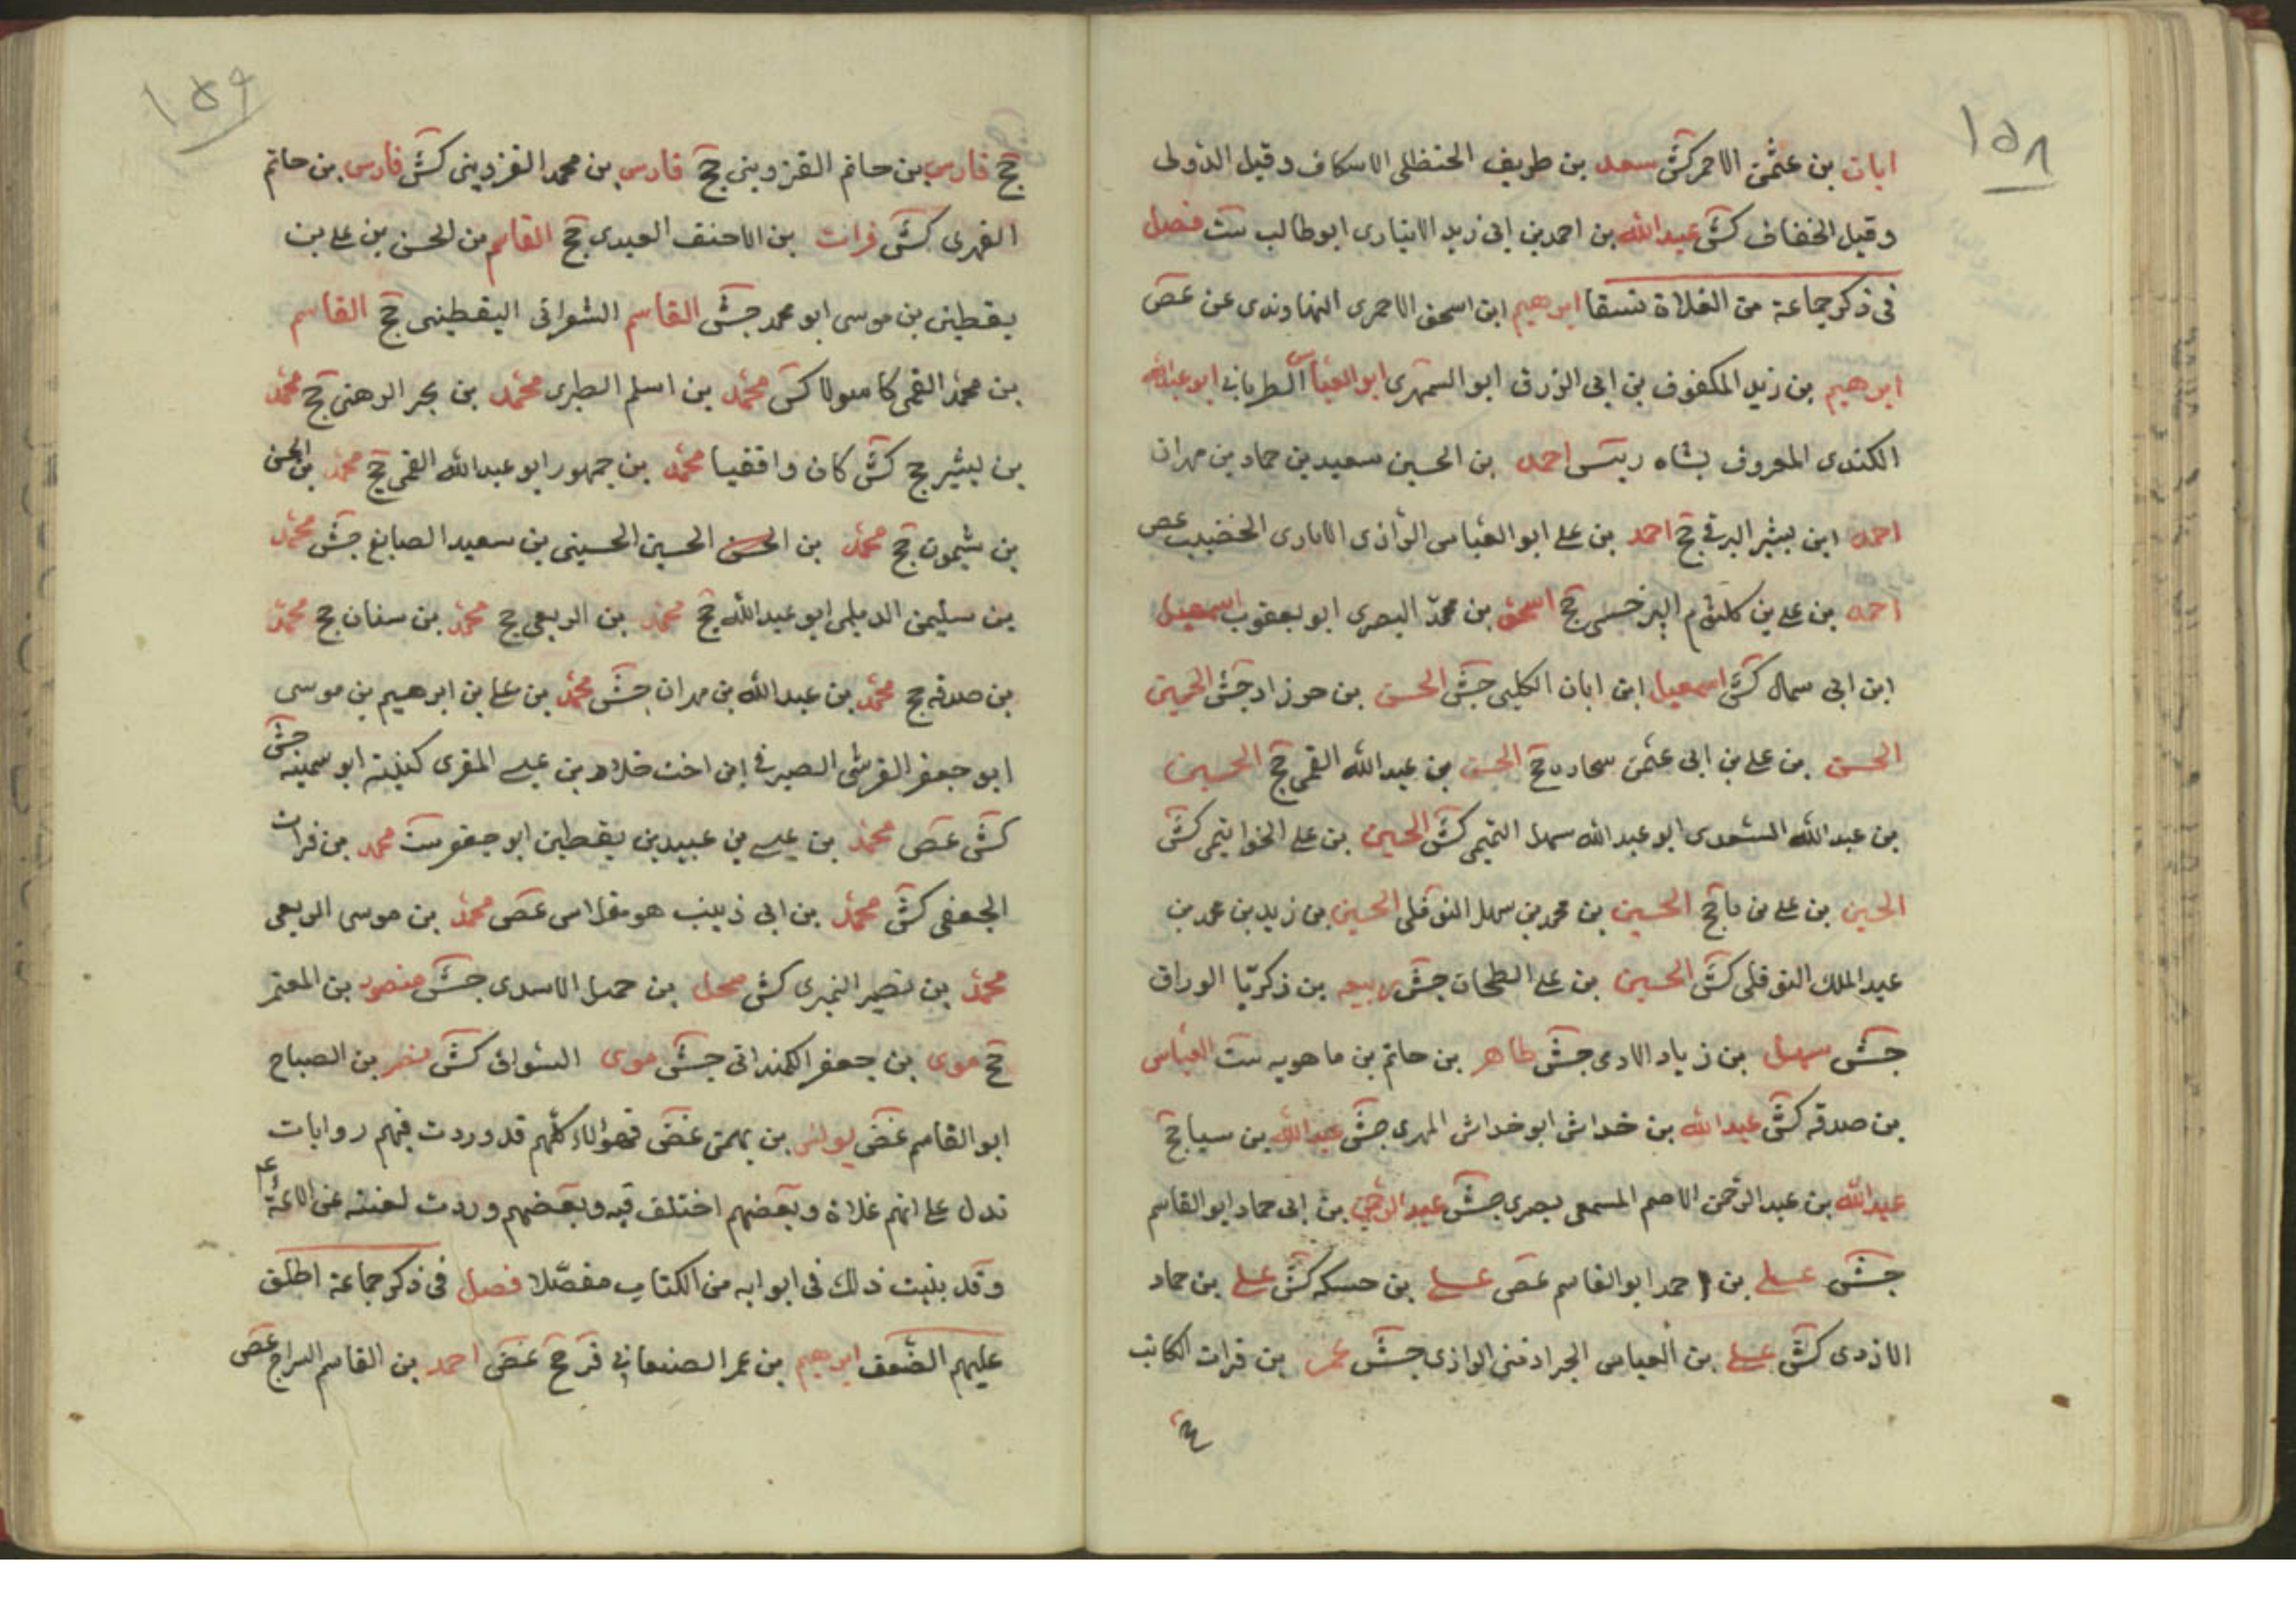 ١٥٨
ابان بن عثمن الاحمر كش سعد بن طريف الحنظلى الاسكاف وقيل الدؤلى
وقيل الخفاف كش عبدالله بن احمد بن ابى زيد الانبارى ابوطالب ست فصل
فى ذكر جماعة من الغلاة نسقا ابرهيم ابن اسحق الاحمرى النهاوندى عن غض
ابرهيم بن زيد المكفوف بن ابى الزرق ابو السمهرى ابو العباس الطربانى ابو عبدالله
الكندى المعروف بشاه رييس احمد بن الحسين سعيد بن حماد بن مهران
احمد ابن بشير البرقى جخ احمد بن على ابو العباس الرازى الايادى الخضيب غض
احمد بن على بن كلثوم السرخسى جخ اسحق بن محمد البصرى ابو يعقوب اسمعيل
ابن ابى سمال كش اسمعيل ابن ابان الكلبى جش الحسن بن حورزاد جش الحسين
الحسن بن على بن ابى عثمن سجاده جخ الحسن بن عبدالله القمى جخ الحسين
بن عبدالله السعدى ابو عبدالله سهل التميمى كش الحسين بن على الخواتيمى كش
الحسين بن على بن جخ الحسين بن محمد بن سهل النوفلى الحسين بن زيد بن محمد بن
عبد الملك النوفلى كش الحسين بن على الطحان جش ربيعه بن زكريّا الوراق
جش سهل بن زياد الادمى جش طاهر بن حاتم بن ماهويه ست العباس
بن صدقه كش عبدالله بن خداش ابوخداش المهرى جش عبدالله بن سبا جخ
عبدالله بن عبد الرحمن الاصم المسمعى بصرى جش عبد الرحمن بن ابى حماد ابو القاسم
جش على بن احمد ابوالقاسم غض على بن حسكه كش على بن حماد
الازدى كش على بن العباس الجراذنى الرازى جش عمر بن فرات الكاتب
١٥٩
جخ فارس بن حاتم القزوينى جخ فارس بن محمد القزوينى كش فارس بن حاتم
الفهرى كش فرات بن الاحنف العبدى جخ القاسم بن الحسن بن على بن
يقطين بن موسى ابو محمد جش القاسم الشعرانى اليقطينى جخ القاسم
بن محمد القمى كش محمد بن اسلم الطبرى محمد بن بحر الرهنى جخ محمد
بن بشير جخ كش كان واقفيا محمد بن جمهور ابو عبدالله القمى جخ محمد بن الحسن
بن شمون جخ محمد بن الحسين الحسينى بن سعيد الصايغ جش محمد
بن سليمن الديلمى ابو عبدالله جخ محمد بن الربعى جخ محمد بن سنان جخ محمد
بن صدقه جخ محمد بن عبدالله بن مهران جش محمد بن على بن ابرهيم بن موسى
ابو جعفر القرشى الصيرفى ابن اخت خلاد بن عيسى المقرى كنيته ابو سمينه جش
كش غض محمد بن عيسى بن عبيد بن يقطين ابو جعفر ست محمد بن فرات
الجعفى كش محمد بن ابى زينب هو مقلاس غض محمد بن موسى الربعى
محمد بن نصير النميرى كش بن جميل الاسدى جش منصور بن المعتمر
جخ موسى بن جعفر الكمندانى جش موسى السواق كش نصر بن الصباح
ابو القاسم غض يونس بن بهمن غض فهؤلاء كلهم قد وردت فيهم روايات
تدل على انهم غلاة وبعضهم اختلف فيه وبعضهم وردت لعنته عن الائمة ع
وقد بنيت ذلك فى ابوابه من الكتاب مفصّلا فصل فى ذكر جماعة اطلق
عليهم الضعف ابرهيم بن عمر الصنعانى ق جخ غض احمد بن القاسم السراج غض